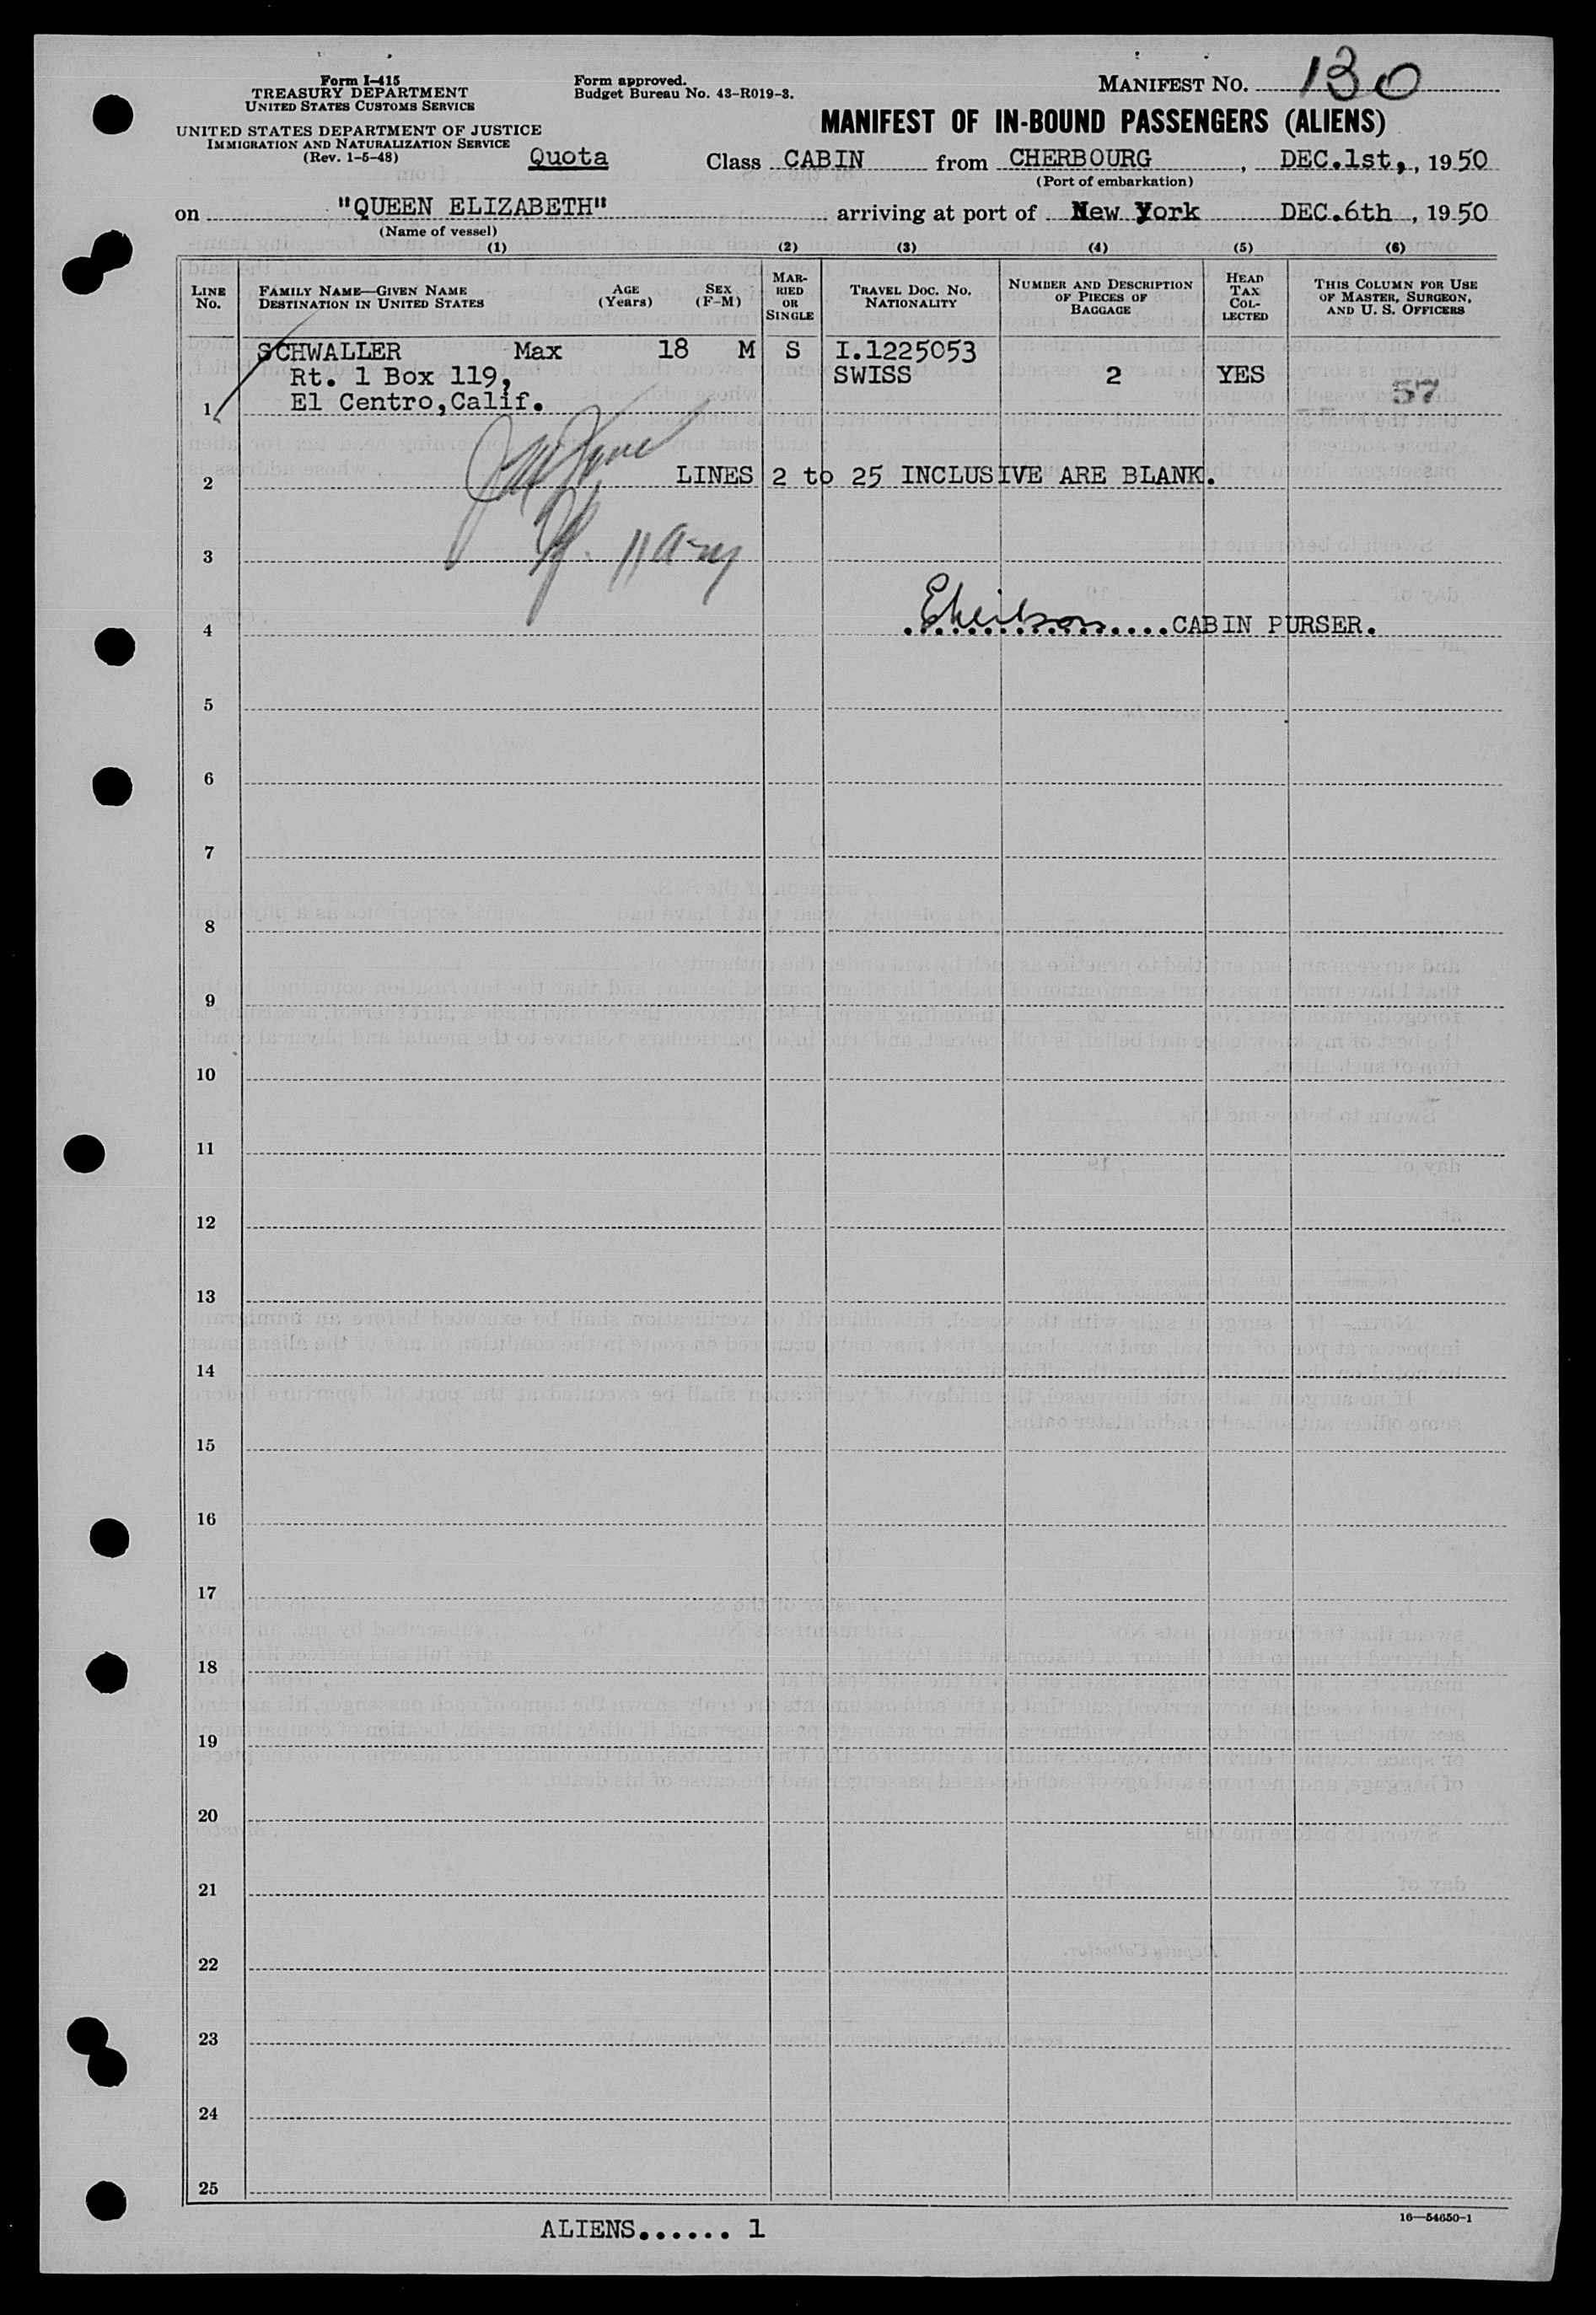 Form I-415
TREASURY DEPARTMENT
UNITED STATES CUSTOMS SERVICE
UNITED STATES DEPARTMENT OF JUSTICE
IMMIGRATION AND NATURALIZATION SERVICE
(Rev. 1-5-48)
Quota
Form approved.
Budget Bureau No. 43-R019-3.
MANIFEST NO. 130
MANIFEST OF IN-BOUND PASSENGERS (ALIENS)
Class CABIN from CHERBOURG, DEC.1st,, 1950
(Port of embarkation)
on "QUEEN ELIZABETH" arriving at port of New York DEC.6th, 1950
(Name of vessel)
(1) (2) (3) (4) (5) (6)
LINE No. FAMILY NAME—GIVEN NAME DESTINATION IN UNITED STATES AGE (Years) SEX (F-M) MARRIED OR SINGLE TRAVEL DOC. NO. NATIONALITY NUMBER AND DESCRIPTION OF PIECES OF BAGGAGE HEAD TAX COLLECTED THIS COLUMN FOR USE OF MASTER, SURGEON, AND U. S. OFFICERS
SCHWALLER Max 18 M S I.1225053
Rt. 1 Box 119, SWISS 2 YES 57
1 El Centro,Calif.
2 LINES 2 to 25 INCLUSIVE ARE BLANK.
3
4 ................CABIN PURSER.
5
6
7
8
9
10
11
12
13
14
15
16
17
18
19
20
21
22
23
24
25
ALIENS...... 1
16—54650-1